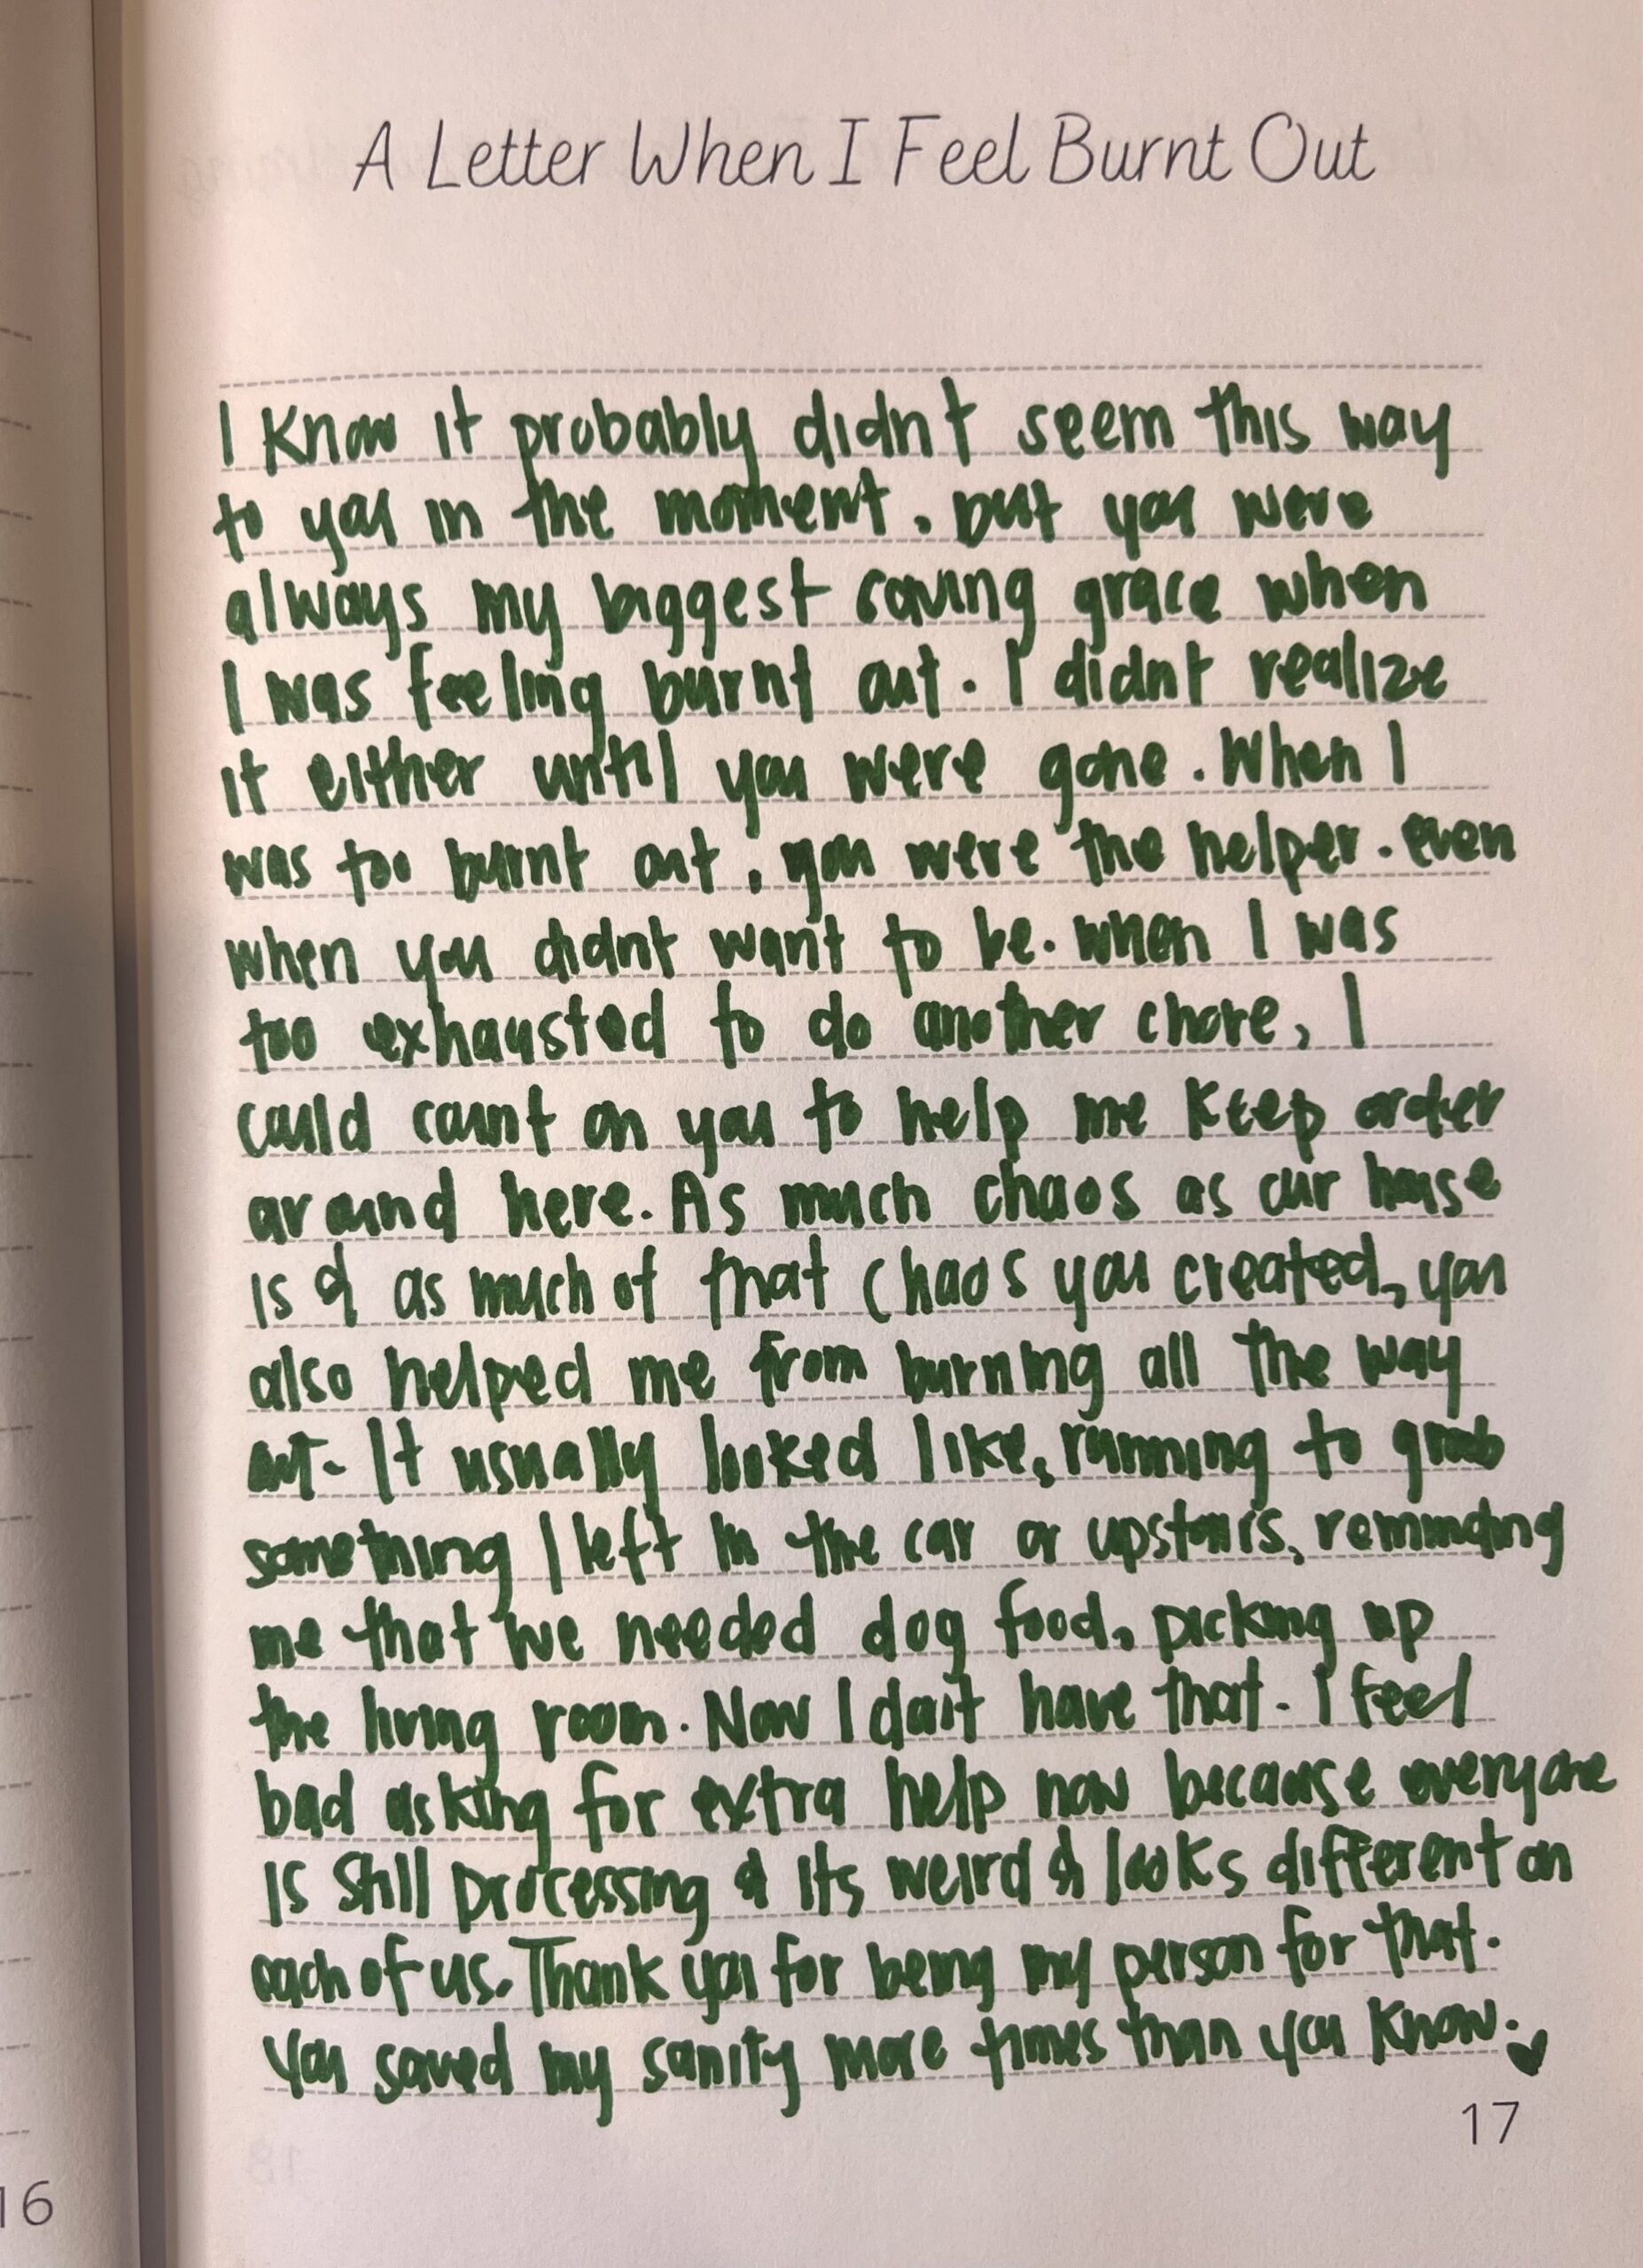 A Letter When I Feel Burnt Out
I Know it probably didn't seem this way
to you in the moment, but you were
always my biggest saving grace when
I was feeling burnt out. I didnt realize
it either until you were gone. When I
was too burnt out, you were the helper. even
when you didnt want to be. when I was
too exhausted to do another chore, I
could count on you to help me keep order
around here. As much chaos as our house
is & as much of that chaos you created, you
also helped me from burning all the way
out. It usually looked like, running to grab
something I left in the car or upstairs, reminding
me that we needed dog food, picking up
the living room. Now I don't have that. I feel
bad asking for extra help now because everyone
is still processing & its weird & looks different on
each of us. Thank you for being my person for that.
You saved my sanity more times than you know. ♥
17
16